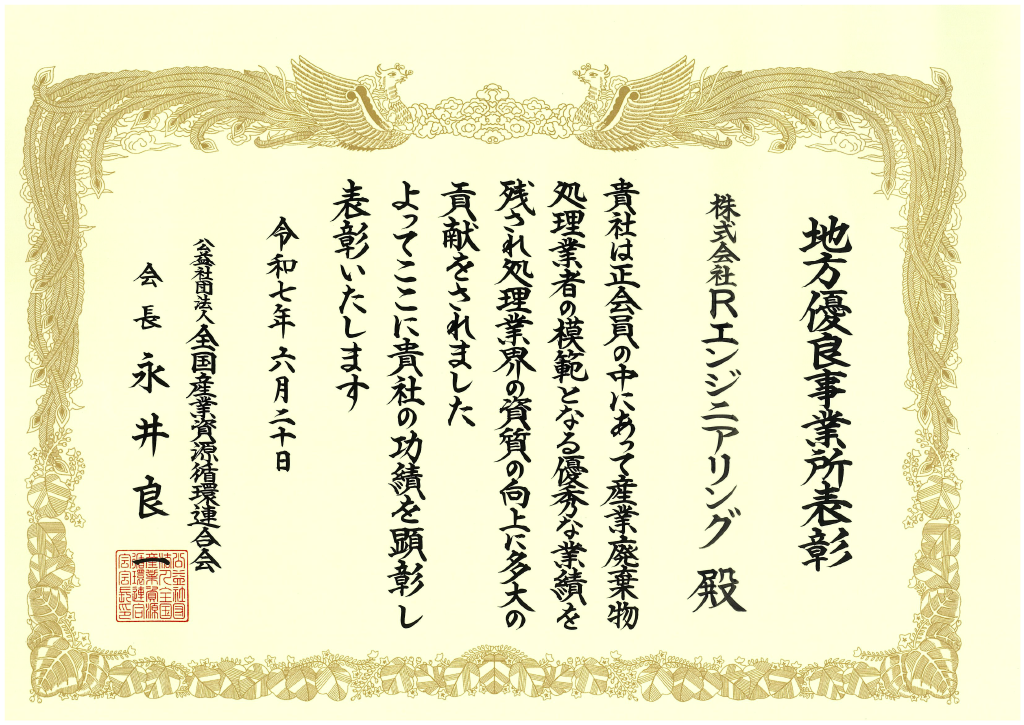 地方優良事業所表彰
株式会社Rエンジニアリング 殿
貴社は正会員の中にあって産業廃棄物
処理業者の模範となる優秀な業績を
残され処理業界の資質の向上に多大の
貢献をされました
よってここに貴社の功績を顕彰し
表彰いたします
令和七年六月二十日
公益社団法人全国産業資源循環連合会
会長 永井良一
公益社団
法人全国
産業資源
循環連合
会会長印